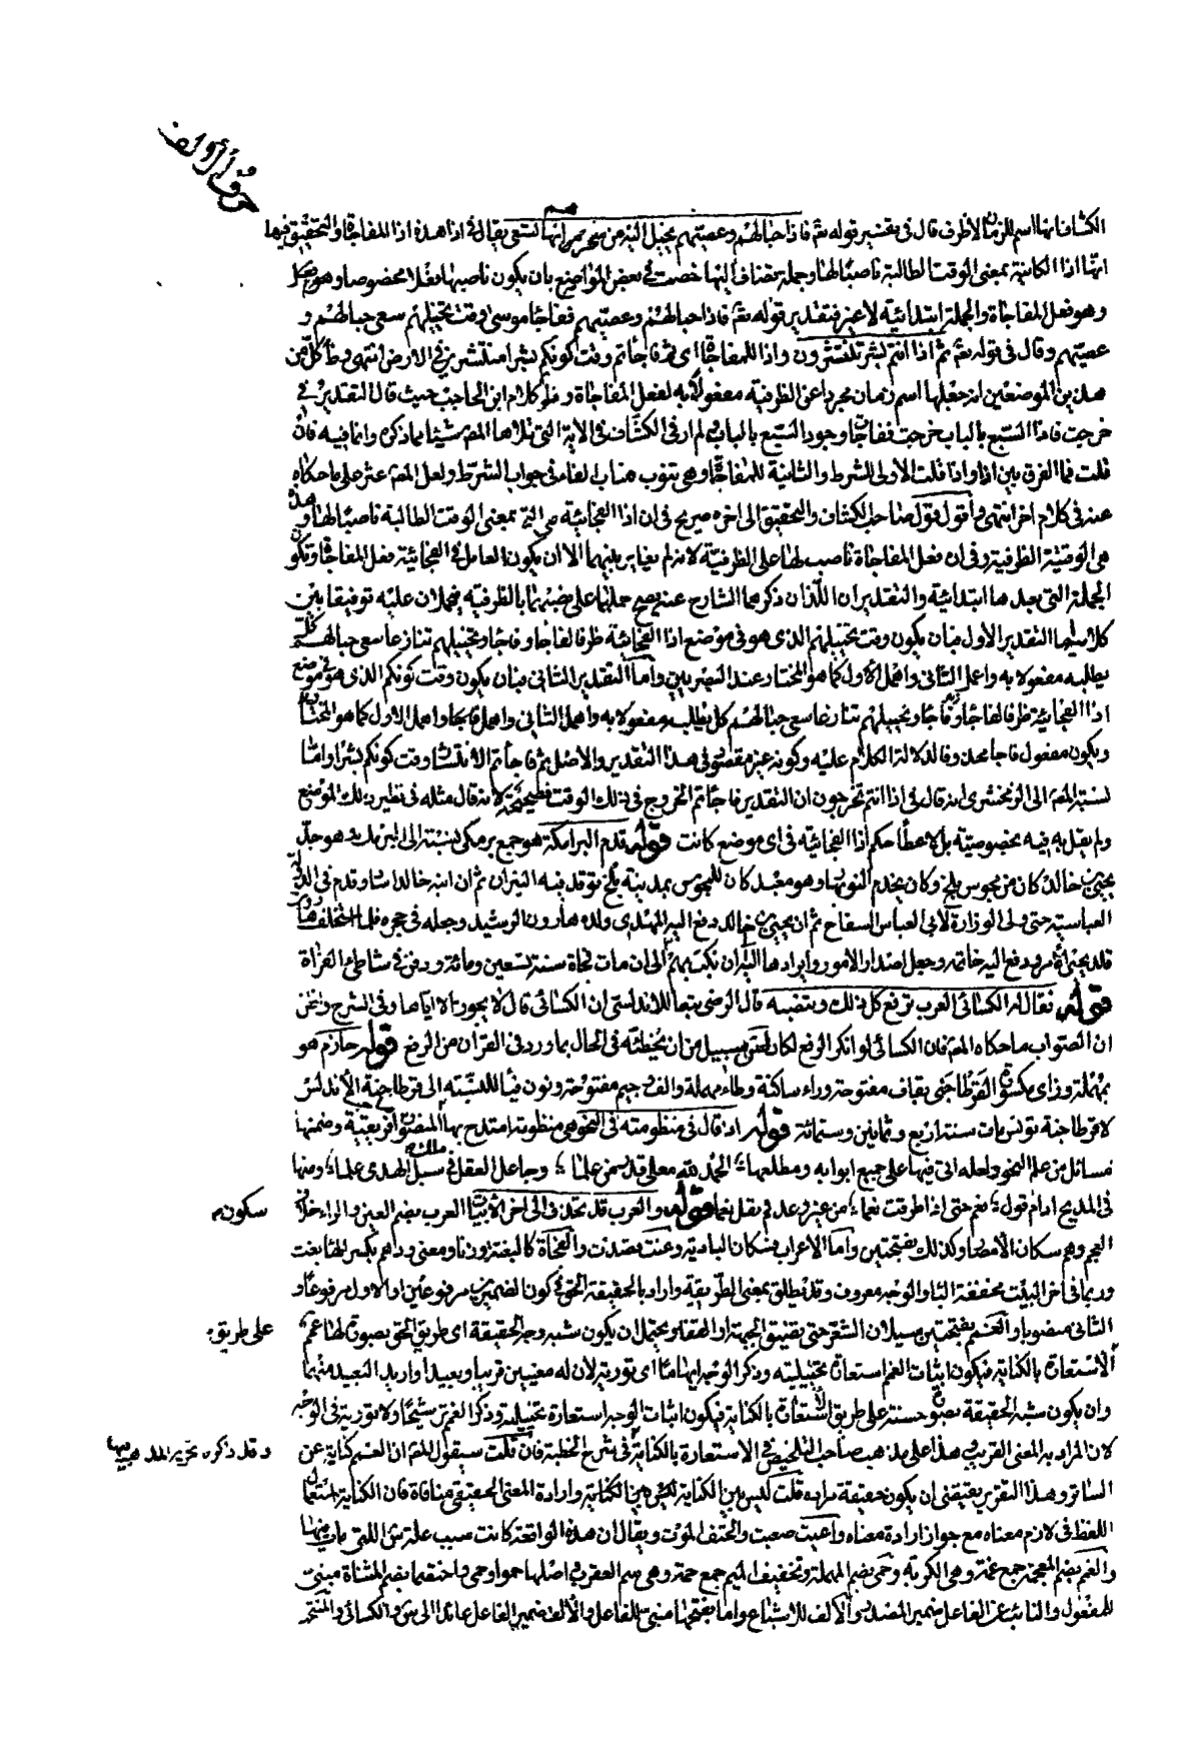 حرف الألف
الكشاف انها اسم للزمان لا ظرف قال في تفسير قوله تعالى فاذا حبالهم وعصيهم يخيل اليه من سحرهم انها تسعى يقال في اذا هذه اذا المفاجاة والتحقيق فيها
انها اذا الكائنة بمعنى الوقت الطالبة ناصبا لها وجملة تضاف اليها خصت في بعض المواضع بان يكون ناصبها فعلا مخصوصا وهو
وهو فعل المفاجاة والجملة ابتدائية لا غير فتقدير قوله تعالى فاذا حبالهم وعصيهم ففاجأ موسى وقت تخييلهم سعى حبالهم و
عصيهم وقال في قوله تعالى ثم اذا انتم بشر تنتشرون واذا للمفاجاة اى ثم فاجأتم وقت كونكم بشرا منتشرين في الارض انتهى وظ كل من
هذين الموضعين انه جعلها اسم زمان مجردا عن الظرفية مفعولا به لفعل المفاجاة و كلام ابن الحاجب حيث قال التقدير في
خرجت فاذا السبع بالباب خرجت ففاجأت وجود السبع بالباب لم ار في الكشاف في الاية التى تلاها المص شيئا مما ذكره وانما فيه فان
قلت فما الفرق بين اذا واذا قلت الاولى للشرط والثانية للمفاجأة وهى تنوب مناب الفاء في جواب الشرط ولعل المص عثر على ما حكاه
عنه في كلام اخر انتهى واقول قول صاحب الكشاف والتحقيق الى اخره صريح في ان اذا الفجائية هي التى بمعنى الوقت الطالبة ناصبا لها وهذه
هى الوقتية الظرفية وفي ان فعل المفاجاة ناصب لها على الظرفية لانه لم يغاير بينهما الا ان يكون العامل في الفجائية فعل المفاجاة وتكون
الجملة التى بعدها ابتدائية والتقديران اللذان ذكرهما الشارح عنه يصح حملهما على نصبهما بالظرفية فيحملان عليه توفيقا بين
كلاميه اما التقدير الاول فبان يكون وقت تخييلهم الذى هو في موضع اذا الفجائية ظرفا لفاجأ وفاجأ وتخييلهم تنازعا سعى حبالهم كل
يطلبه مفعولا به واعمل الثانى واهمل الاول كما هو المختار عند البصريين واما التقدير الثانى فبان يكون وقت كونكم الذى هو في موضع
اذا الفجائية ظرفا لفاجأ وفاجأ وتخييلهم تنازعا سعى حبالهم كل يطلبه مفعولا به واعمل الثانى واهمل الاول كما هو المختار
ويكون مفعول فاجأ محذوفا لدلالة الكلام عليه وكونه غير مقصود في هذا التقدير والاصل ثم فاجأتم الانتشار وقت كونكم بشرا واما
نسبة المص الى الزمخشرى انه قال في اذا انتم تخرجون ان التقدير فاجأتم الخروج في ذلك الوقت فصحيحة لانه قال مثله في نظير ذلك الموضع
ولم يقل به فيه بخصوصيته بل لاعطاء حكم اذا الفجائية في اى موضع كانت قوله قدم البرامكة هو جمع برمكى نسبة الى برمك وهو جد
يحيى بن خالد كان من مجوس بلخ وكان يخدم النوبهار وهو معبد كان للمجوس بمدينة بلخ توقد فيه النيران ثم ان ابنه خالدا ساد وتقدم في الدولة
العباسية حتى ولى الوزارة لابى العباس السفاح ثم ان يحيى بن خالد دفع اليه المهدى ولده هارون الرشيد وجعله في حجره فلما استخلف هارون
قلد يحيى امره ودفع اليه خاتمه وجعل اصدار الامور وايرادها اليه الى ان نكبت بهم الى ان مات فجاة سنة تسعين ومائة ودفن في شاطئ الفراة
قوله فقال له الكسائى العرب ترفع كل ذلك وتنصبه قال الرضى تبعا للاندلسى ان الكسائى قال لا يجوز الا اياها وفي الشرح ونحن
ان الصواب ما حكاه المص فان الكسائى لو انكر الرفع لكان لقى سبيل من ان يخطئه في الحال بما ورد في القران من الرفع قوله حازم هو
بمهملة وزاى مكسورة القرطاجنى بقاف مفتوحة وراء ساكنة وطاء مهملة والف وجيم مفتوحة ونون فياء للنسبة الى قرطاجنة الاندلس
لا قرطاجنة تونس مات سنة اربع وثمانين وستمائة قوله اذ قال في منظومته في النحو هى منظومة امتدح بها المنصور بافريقية وضمنها
مسائل من علم النحو ولعله اتى فيها على جميع ابوابه ومطلعها الحمد لله معلى قدر من علما وجاعل العقل في سبل الهدى علما ومنها
في المديح
العجم وهم سكان الامصار وكذلك بفتحتين واما الاعراب فسكان البادية وعنت بصدفت والفجأة كالبغتة وزنا ومعنى ودهم بكسر الهاء بغت
وربما في اخر البيت مخففة الباء والوجه معروف وقد يطلق بمعنى الطريقة واراد بالحقيقة الحق في كون الضميرين مرفوعين او الاول مرفوعا و
الثانى منصوبا والغمم بفتحتين سيلان الشعر حتى تضيق الجبهة او القفا ويحتمل ان يكون شبه وجه الحقيقة اى طريق الحق بصورة لها غمم
الاستعارة بالكناية فيكون اثبات الغمم استعارة تخييلية وذكر الوجه ايهاما اى تورية لان له معنيين قريبا وبعيدا واريد البعيد منهما
وان يكون شبه الحقيقة بصورة حسنة على طريق الاستعارة بالكناية فيكون اثبات الوجه استعارة تخييلية وذكر الغمم ترشيحا ولا تورية في الوجه
لان المراد به المعنى القريب هذا على مذهب صاحب التلخيص في الاستعارة بالكناية في شرح الخطبة فان قلت سيقول المص ان الغمم كناية عن
الساتر وهذا التقرير يقتضى ان يكون حقيقة مراده قلت ليس بين الكناية وارادة المعنى الحقيقى منافاة فان الكناية استعمال
اللفظ في لازم معناه مع جواز ارادة معناه واعيت صعبت والحتف الموت ويقال ان هذه الواقعة كانت سبب علة سيبويه التى مات منها
والغمم بضم المعجمة جمع غمة وهى الكربة وحمى بضم المهملة وتخفيف الميم جمع حمة وهى سم العقرب اصلها حمو او حمى واختصما بضم المثناة مبنى
للمفعول والنائب عن الفاعل ضمير المصدر والالف للاشباع واما بفتحها مبنى للفاعل والالف ضمير الفاعل عائد الى سيبويه والكسائى
سكون
على طريق
وقد ذكره تحرير المذهبين